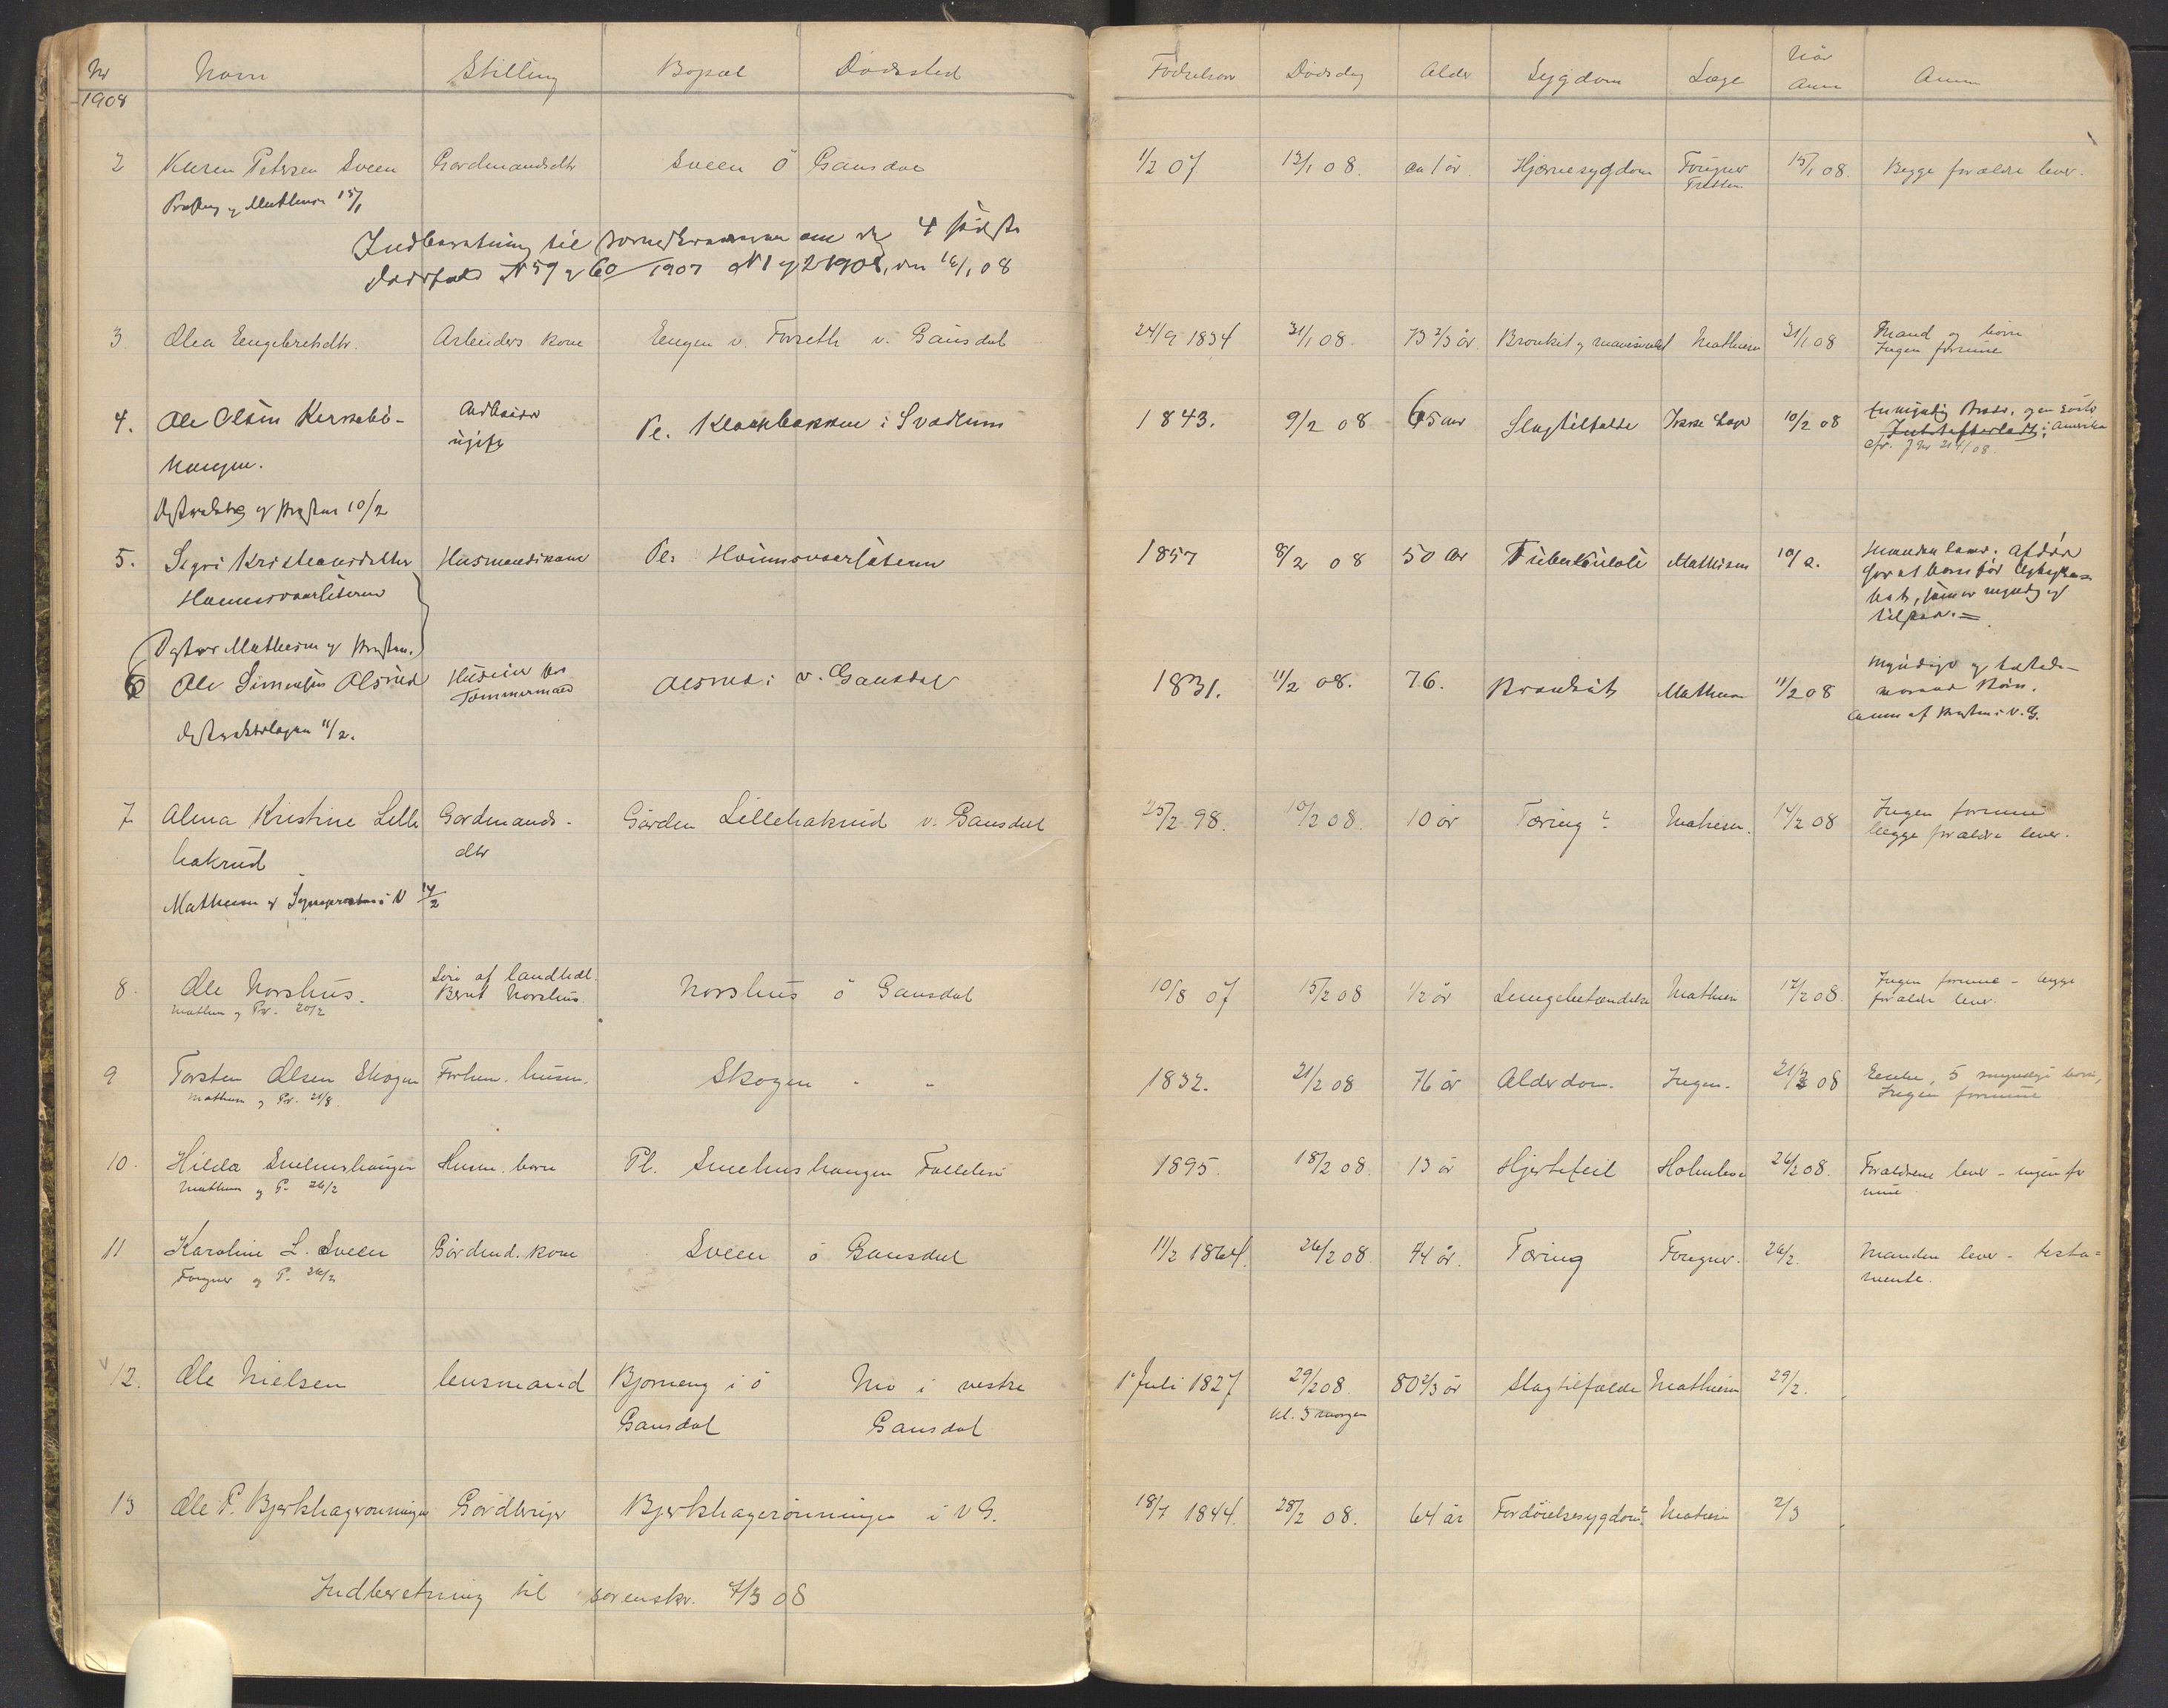 Nr Navn Stilling Bopæl Dødssted Fødselsaar Dødsdag Alder Sygdom Læge Når Anm Anm
1908
2 Karen Petersen Sveen Gardmandsdtr Sveen Ö Gausdal 1/2 07 13/1 08. ca 1 år Hjærnesygdom Fougner 15/1 08. Begge forældre lever.
Præsten og Mathiesen 15/1 Tretten
Indberetning til sorenskriveren om de 4 sidste
dødsfald N 59 og 60/1907 N 1 og 2 1908, den 16/1 08
3. Olea Engebretsdtr. Arbeiders kone Engen v. Forseth v. Gausdal 24/9 1834 31/1 08. 73 2/3 år. Bronkit og Mathiesen 31/1 08 Mand og börn
Ingen formue
4. Ole Olsen Arbeider Pl. Klokkbakken i Svatsum 1843. 9/2 08 65 aar Slagtilfælde Ikke Læge 10/2 08 en söster
haugen. ugift i Amerika
cfr. J Nr 214/08.
og præsten 10/2
5. Sigri Kristiansdatter Husmandskone Pl. 1857 8/2 08 50 aar Tuberkulose Mathiesen 10/2. Manden lever. Afdöde
har et barn för ægteska-
bet, som er myndig og
tilstede. =
Mathiesen og præsten.
6 Ole Simensen Olsrud Tømmermand Olsrud i v. Gausdal 1831. 11/2 08. 76. Bronkit Mathiesen 11/2 08 Myndige og tilstede-
værende Börn.
Anm af præsten i V. G.
11/2.
7 Alma Kristine Lille Gardmands- Gården Lillehakrud v. Gausdal 25/2 98. 10/2 08. 10 år Tæring? Mathiesen. 14/2 08 Ingen formue
hakrud dtr begge forældre lever.
Mathiesen og Sogneprest i V 14/2
8. Ole Norshus. Sön af landhdl. Norshus ö Gausdal 10/8 07 15/2 08 1/2 år Lungebetændelse Mathiesen 17/2 08. Ingen formue - begge
Mathiesen og Pr. 20/2 Bernt Norshus. forældre lever.
9 Torsten Olsen Skogen Forhen. husm. Skogen " " 1832. 21/2 08 76 år Alderdom. Ingen. 21/2 08 Enke, 5 myndige börn,
Mathiesen og Pr. Ingen formue
10. Hilda Husm. barn Pl. 1895. 18/2 08. 13 år Hjertefeil Holmboe 26/2 08. Forældrene lever - ingen for
Mathiesen og P. 26/2 mue
11 Karoline L. Sveen Gårdmd. kone Sveen ö Gausdal 11/2 1864. 26/2 08. 44 år. Tæring Fougner. 26/2. Manden lever - testa=
Fougner og P. 26/2 mente.
12. Ole Nielsen lensmand Bjørneng i ö Mo i vestre 1 Juli 1827 29/2 08. 80 2/3 år Slagtilfælde Mathiesen 29/2.
Gausdal Gausdal kl. 5 morgen
13 Ole P. Bjerkhagerönningen Gårdbruger Bjerkhagerönningen i V G. 18/7 1844. 28/2 08. 64 år Fordöielsesygdom? Mathiesen 2/3
Indberetning til sorenskr. 7/3 08